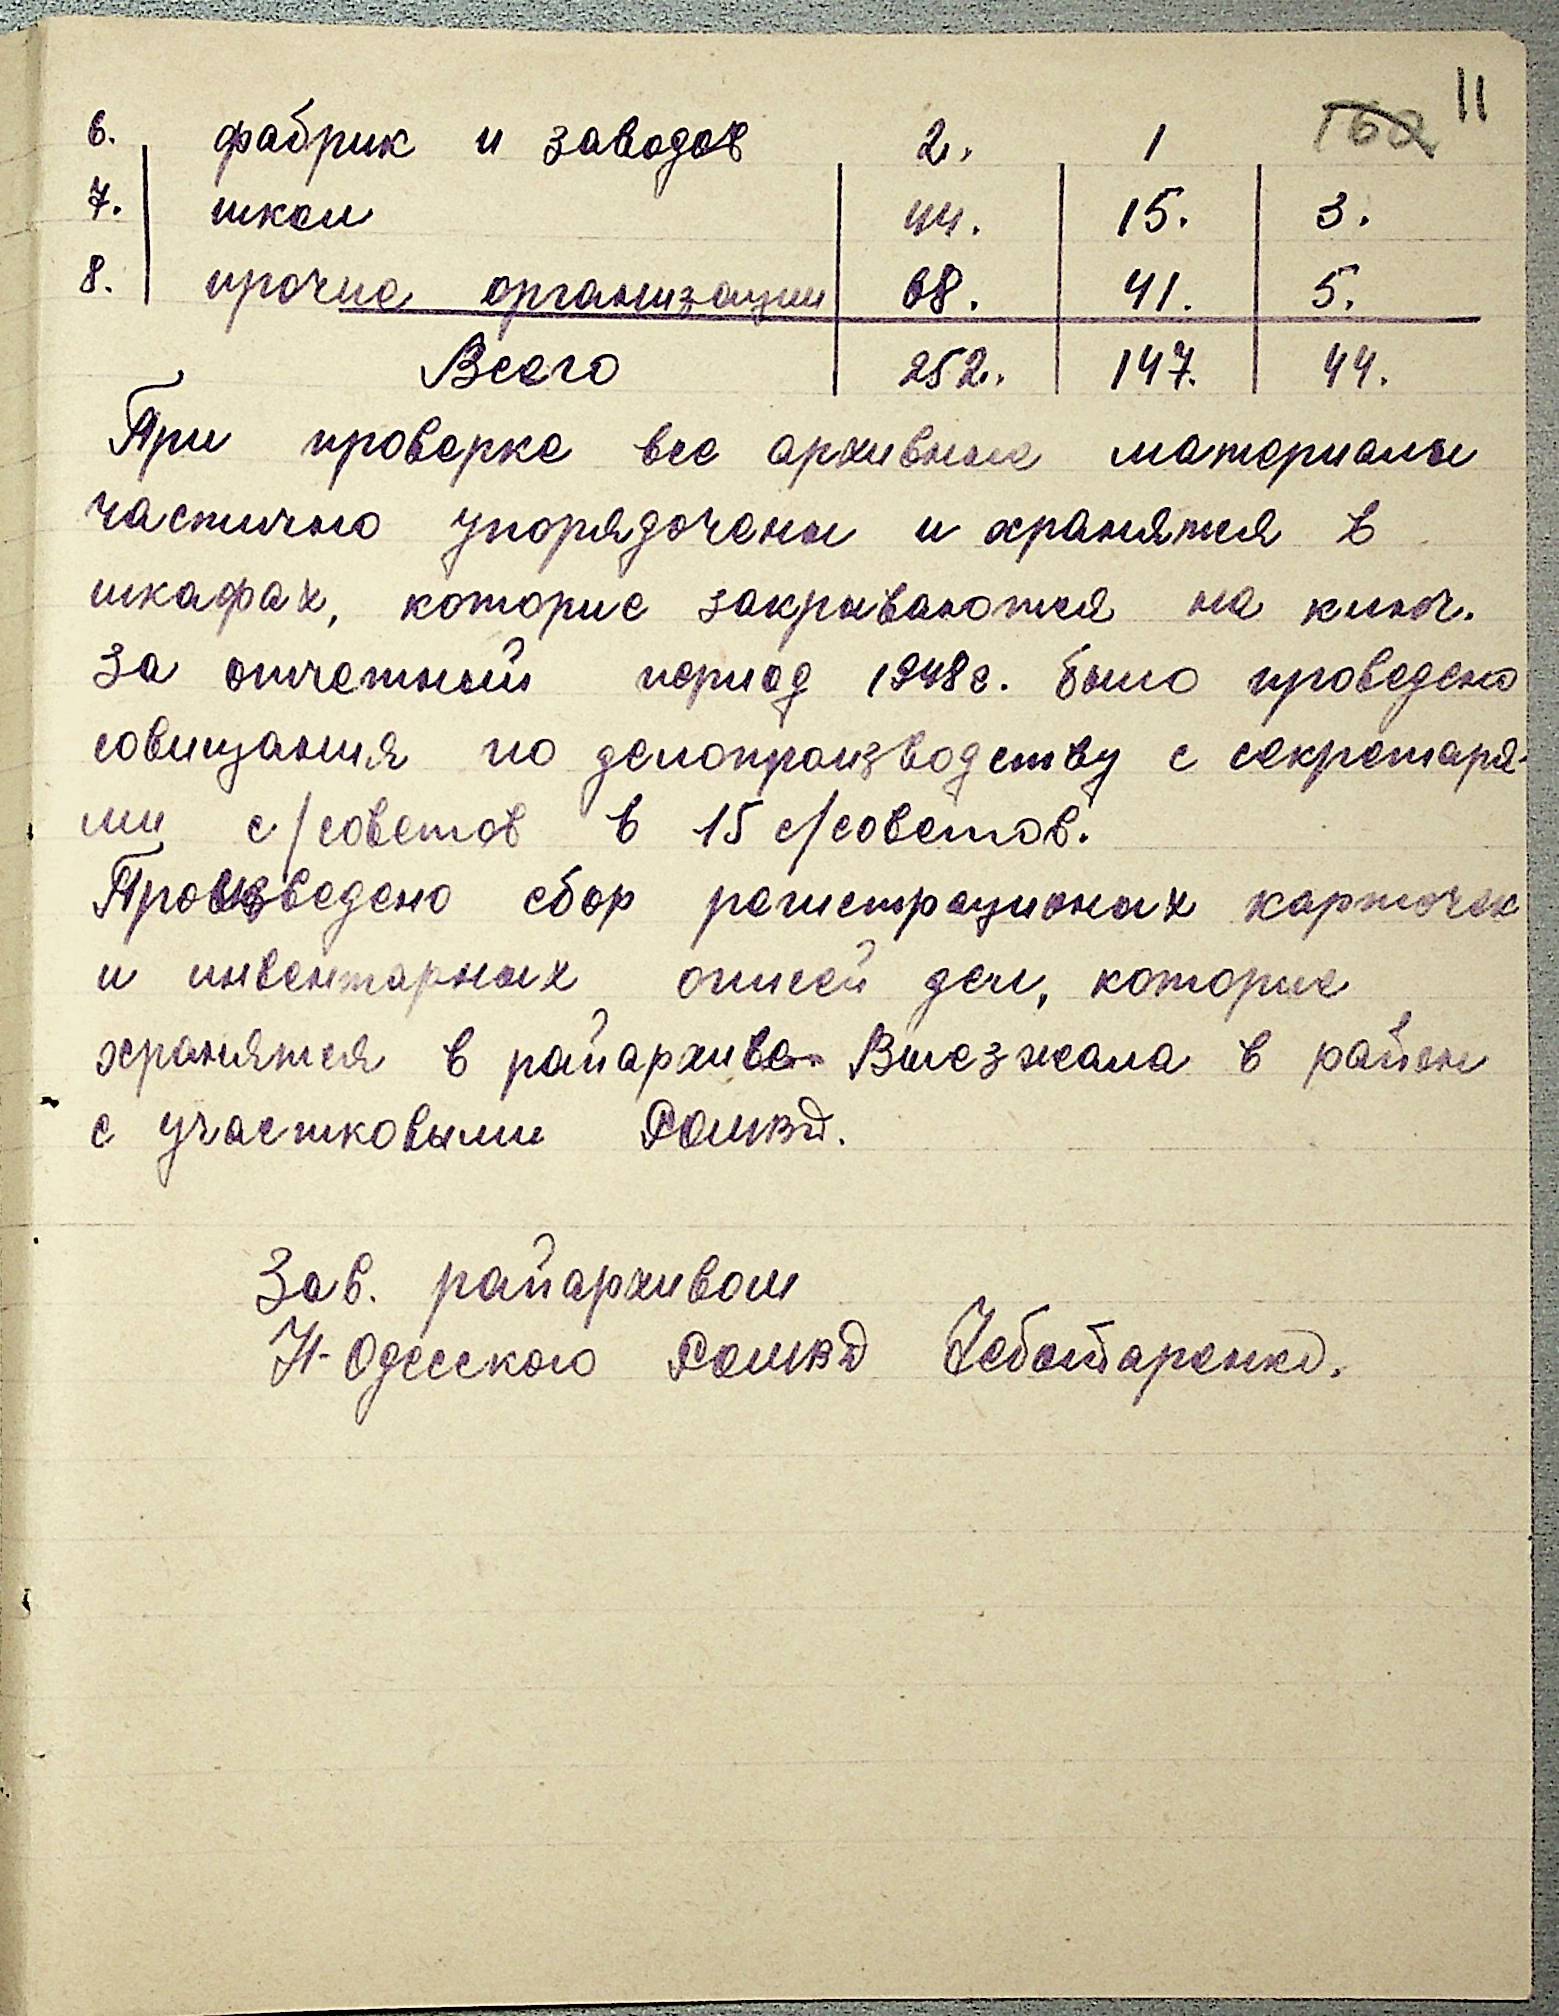 11
162
6. фабрик и заводов 2. 1
7. школ 44. 15. 3.
8. прочие организации 68. 41. 5.
Всего 252. 147. 44.
При проверке все архивные материалы
частично упорядочены и хранятся в
шкафах, которие закрываются на ключ.
За отчетный период 1948г. было проведено
совищания по делопроизводству с секретаря-
ми с/советов в 15 с/советов.
Произведено сбор регистрационых карточек
и инвентарных описей дел, которие
хранятся в райархиве. Выезжала в район
с участковыми РОМВД.
Зав. райархивом
Н-Одесского РОМВД Чеботаренко.